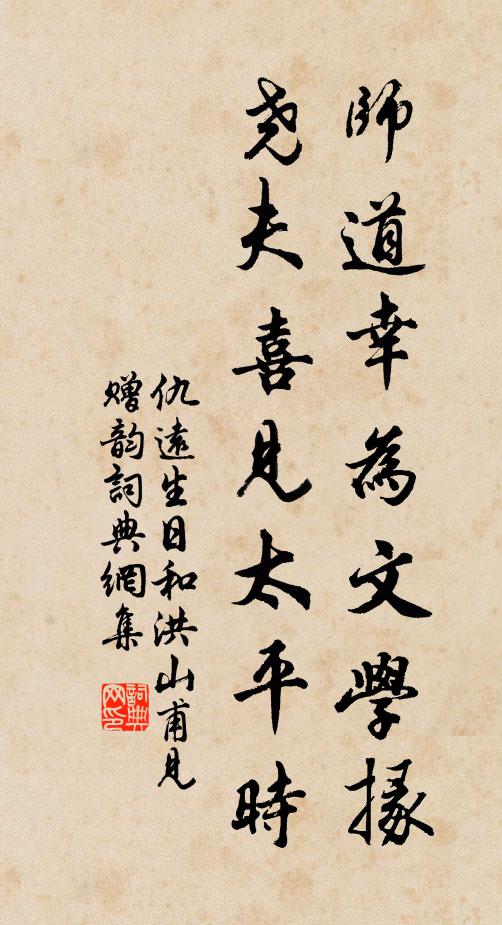 師道幸為文學掾
尧夫喜見太平時
仇遠生日和洪山甫見
赠韵詞典網集
詞典
网印